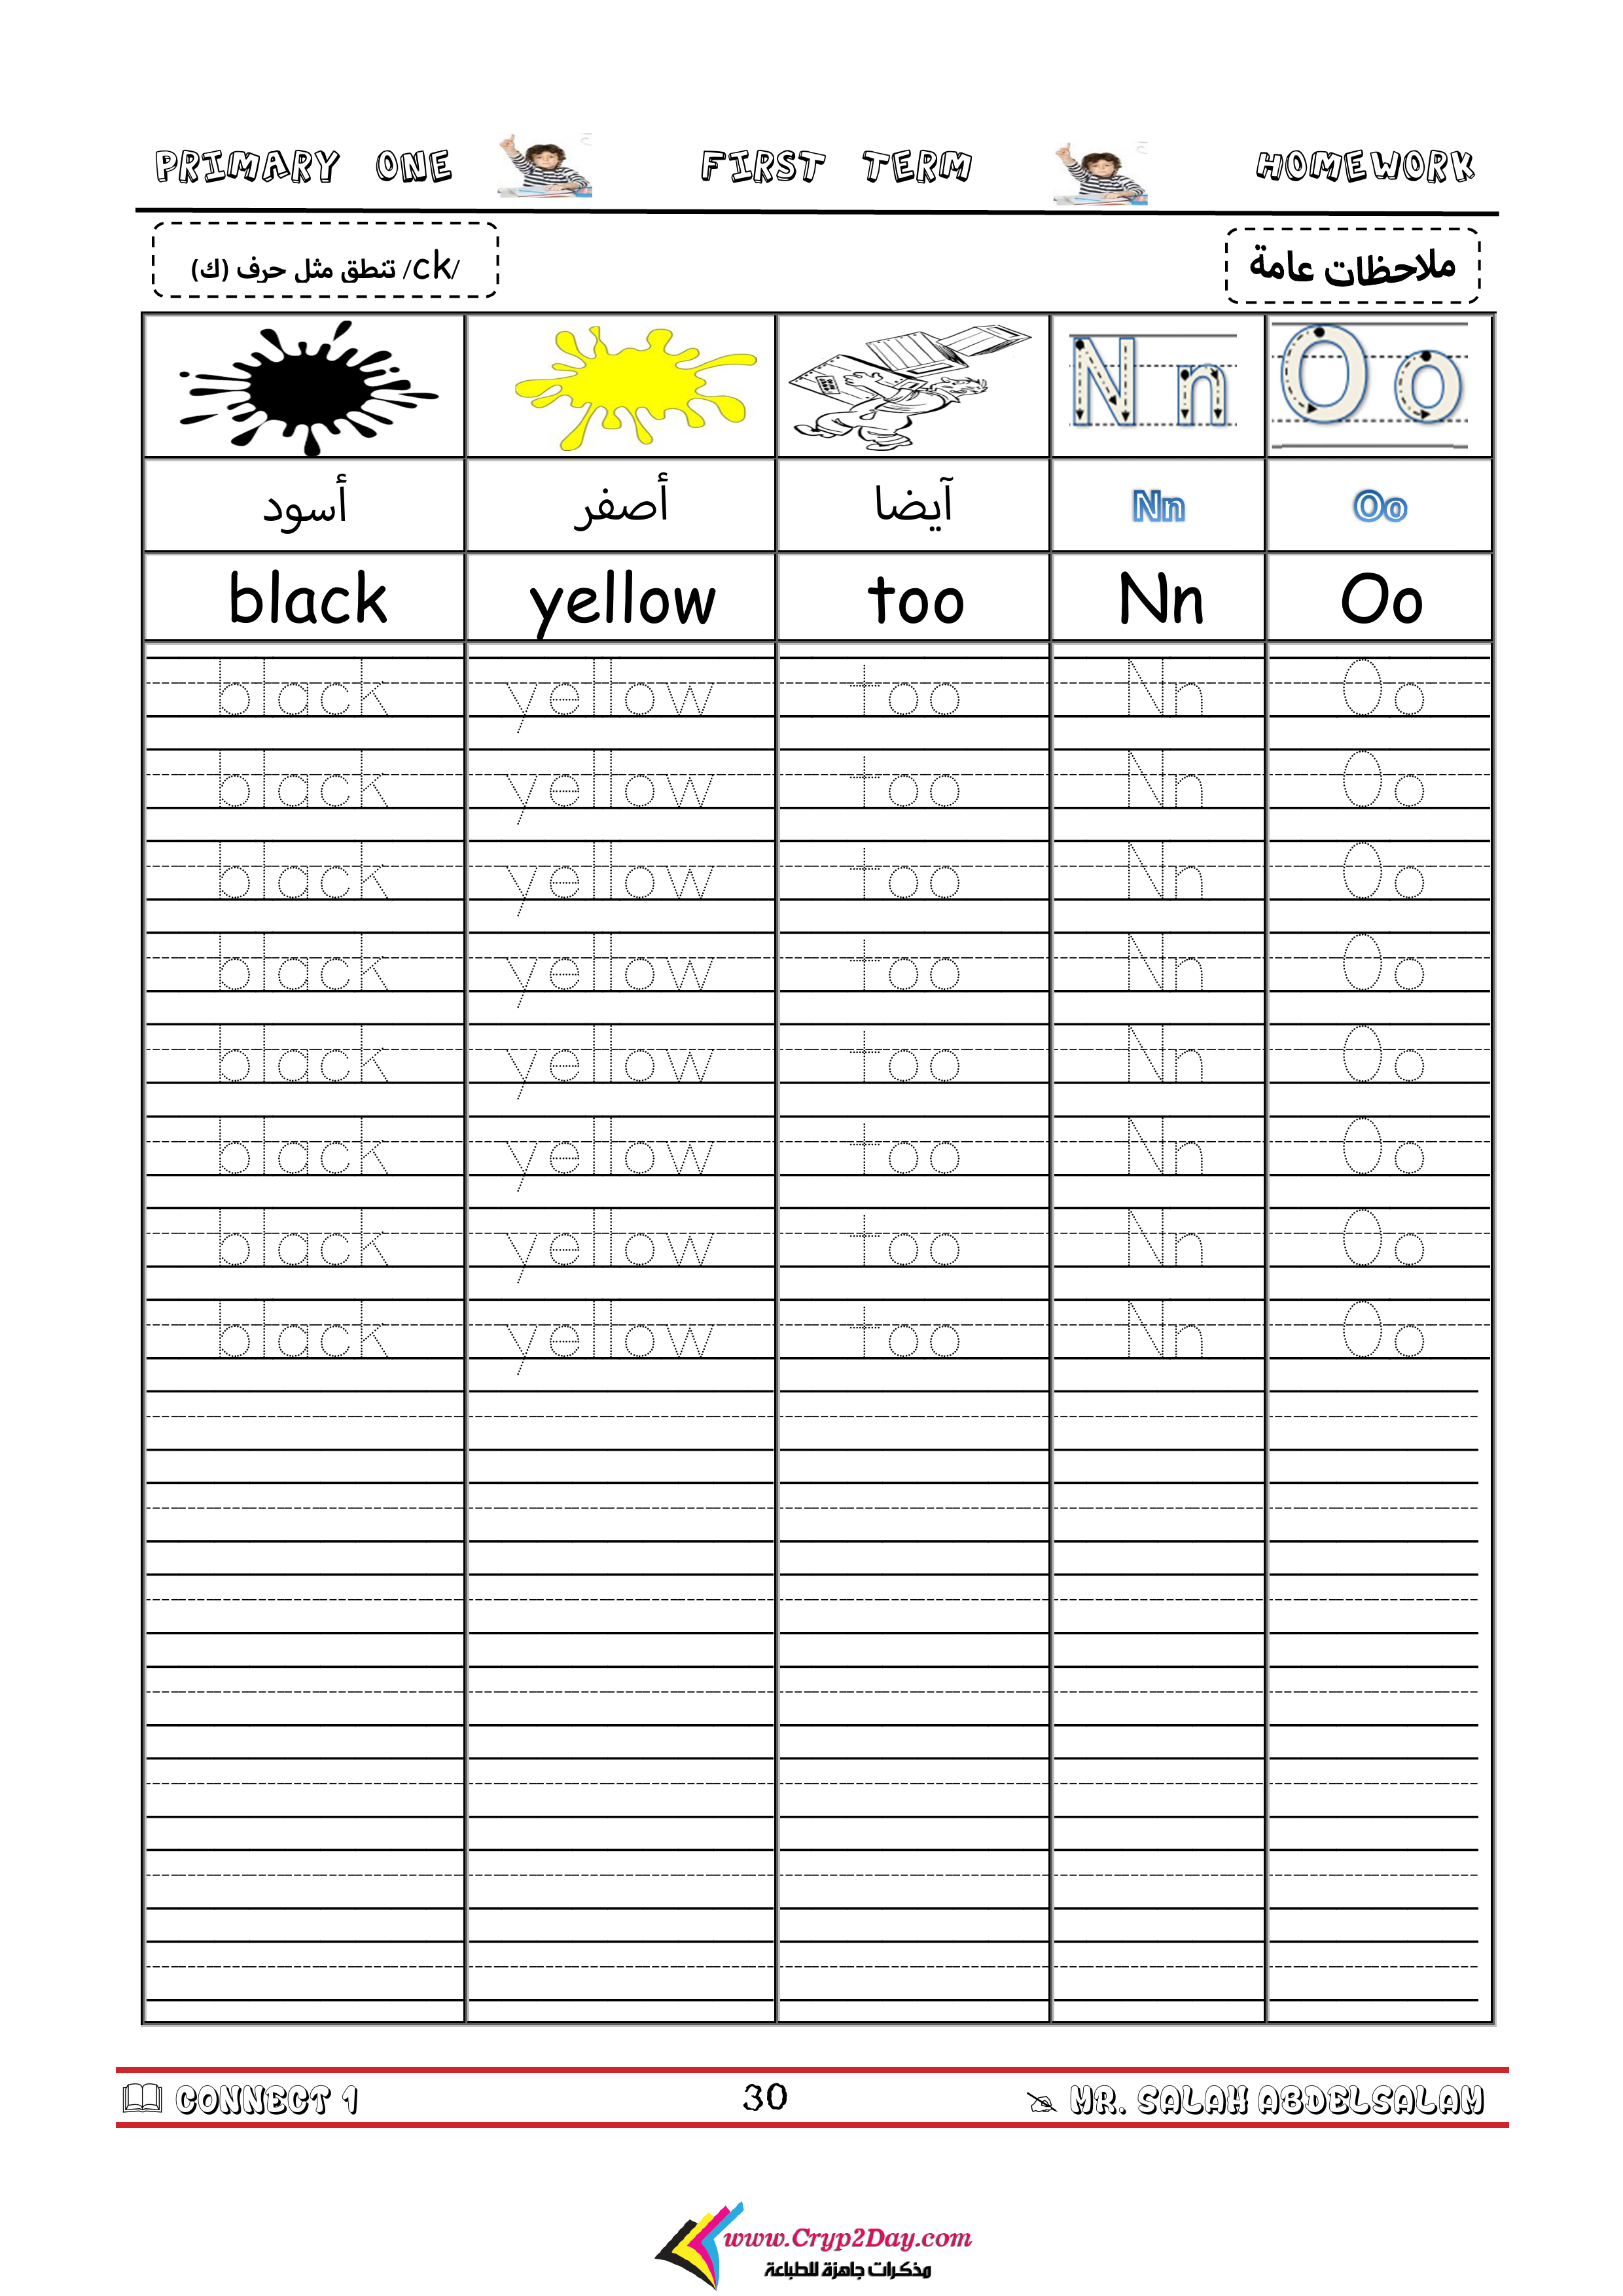 PRIMARY ONE FIRST TERM HOMEWORK
/ck/ تنطق مثل حرف (ك)
ملاحظات عامة
N n O o
أسود أصفر آيضا Nn Oo
black yellow too Nn Oo
black yellow too Nn Oo
black yellow too Nn Oo
black yellow too Nn Oo
black yellow too Nn Oo
black yellow too Nn Oo
black yellow too Nn Oo
black yellow too Nn Oo
black yellow too Nn Oo
CONNECT 1 30 MR. SALAH ABDELSALAM
www.Cryp2Day.com
مذكرات جاهزة للطباعة